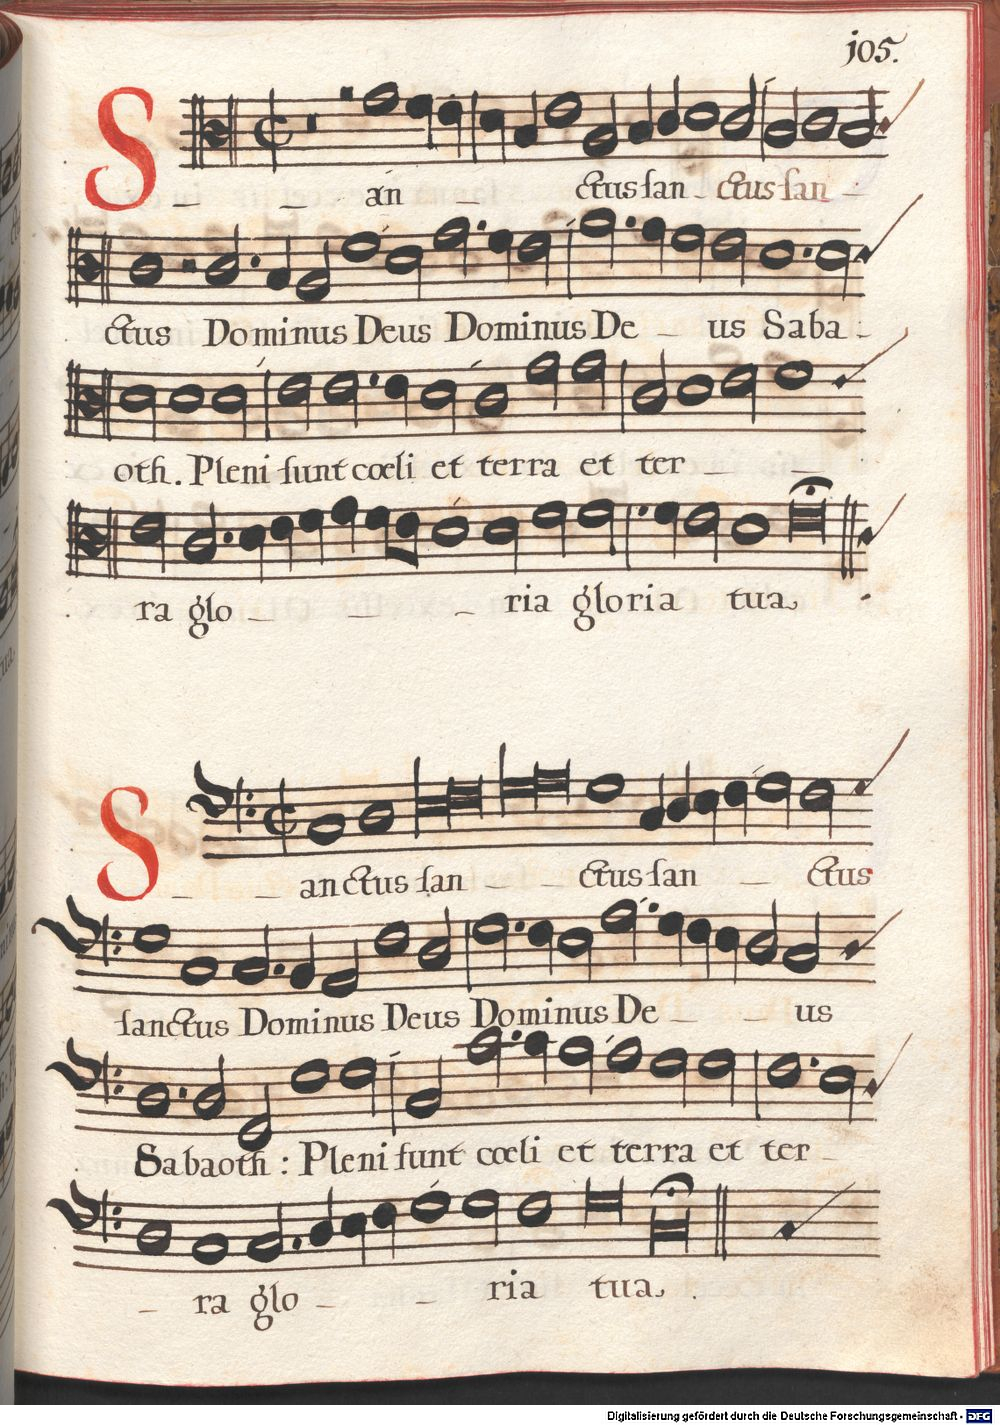 105.
S_ an ctus san_ ctus san_
ctus Dominus Deus Dominus De_ us Saba:
oth. Pleni sunt cœli et terra et ter_ _
ra glo_ _ _ ria gloria tua
S_ _ an ctus san_ _ ctus san_ ctus
sanctus Dominus Deus Dominus De_ _ us
Sabaoth: Pleni sunt cœli et terra et ter_
_ ra glo_ _ ria tua.
Digitalisierung gefördert durch die Deutsche Forschungsgemeinschaft - DFG